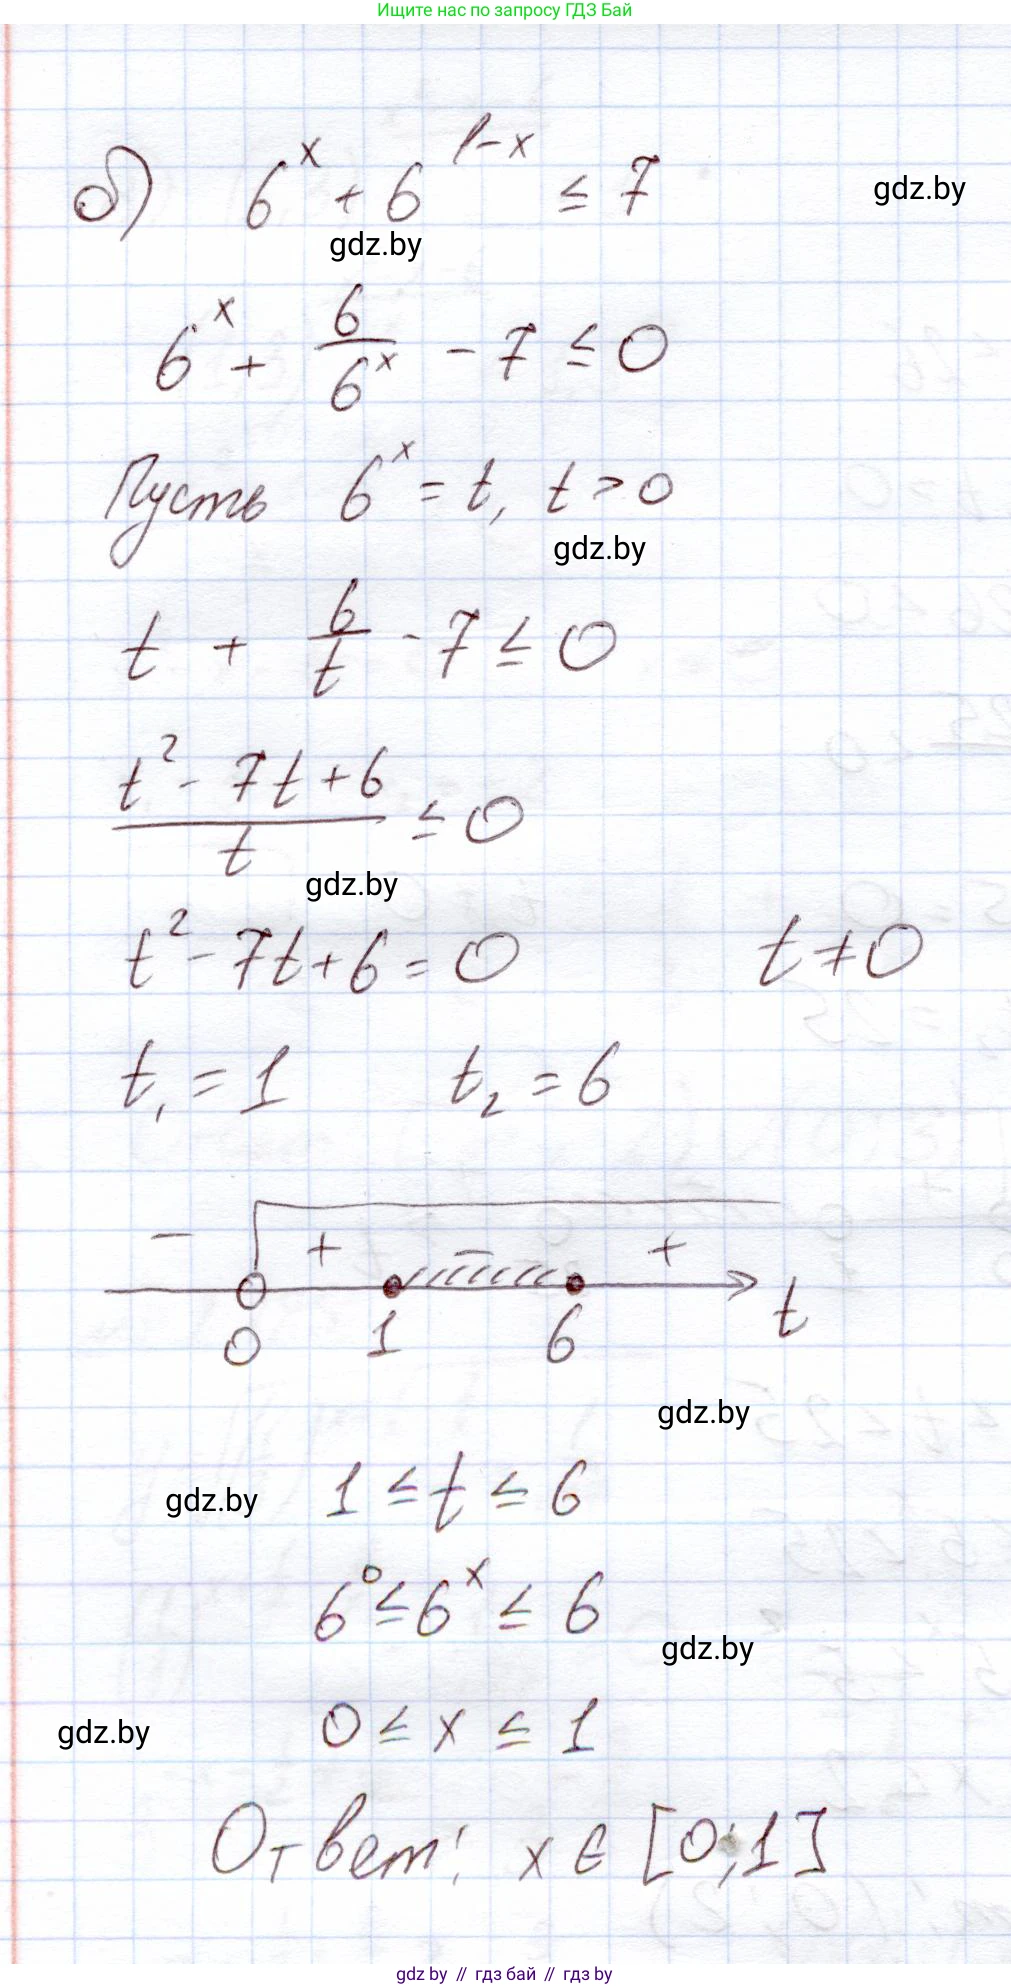 Ищите нас по запросу ГДЗ Бай
б) 6^x + 6^(1-x) ≤ 7
gdz.by
gdz.by
6^x + 6/6^x - 7 ≤ 0
Пусть 6^x = t, t > 0
gdz.by
t + 6/t - 7 ≤ 0
(t² - 7t + 6)/t ≤ 0
gdz.by
t² - 7t + 6 = 0 t ≠ 0
t₁ = 1 t₂ = 6
- + - +
0 1 6 t
gdz.by
gdz.by 1 ≤ t ≤ 6
6^0 ≤ 6^x ≤ 6
gdz.by
gdz.by 0 ≤ x ≤ 1
Ответ: x ∈ [0;1]
gdz.by // гдз бай // гдз by